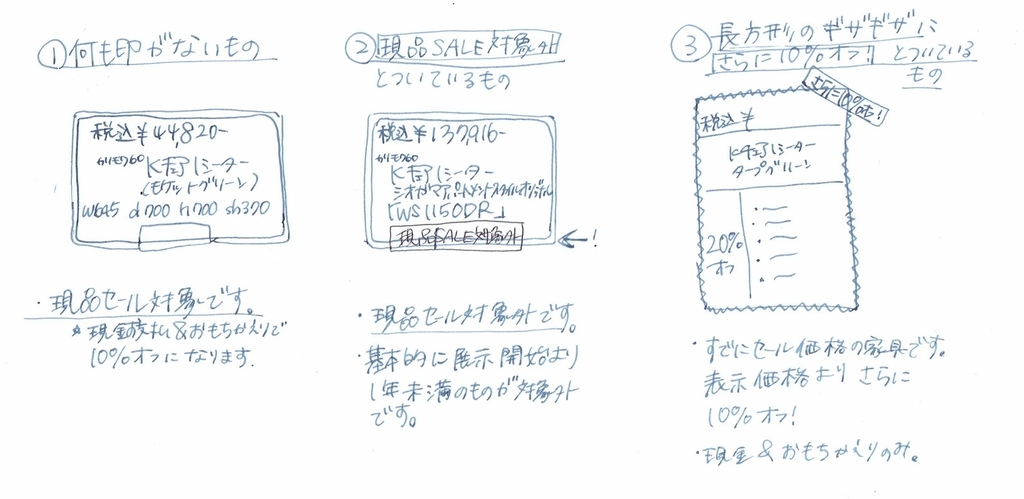 ① 何も印がないもの
税込¥44,820-
カリモク60
Kチェア1シーター
(モケットグリーン)
W645 d700 h700 sh370
・現品セール対象です。
*現金支払&おもちかえりで
10%オフになります。
② 現品SALE対象外
とついているもの
税込¥137,916-
カリモク60
Kチェア1シーター
シオガマアパートメントスタイルオリジナル
「WS1150DR」
現品SALE対象外
←!
・現品セール対象外です。
・基本的に展示開始より
1年未満のものが対象外
です。
③ 長方形のギザギザに
さらに10%オフ! とついている
もの
さらに10%オフ!
税込¥
Kチェア1シーター
タープグリーン
20%
オフ
・すでにセール価格の家具です。
表示価格よりさらに
10%オフ!
・現金&おもちかえりのみ。